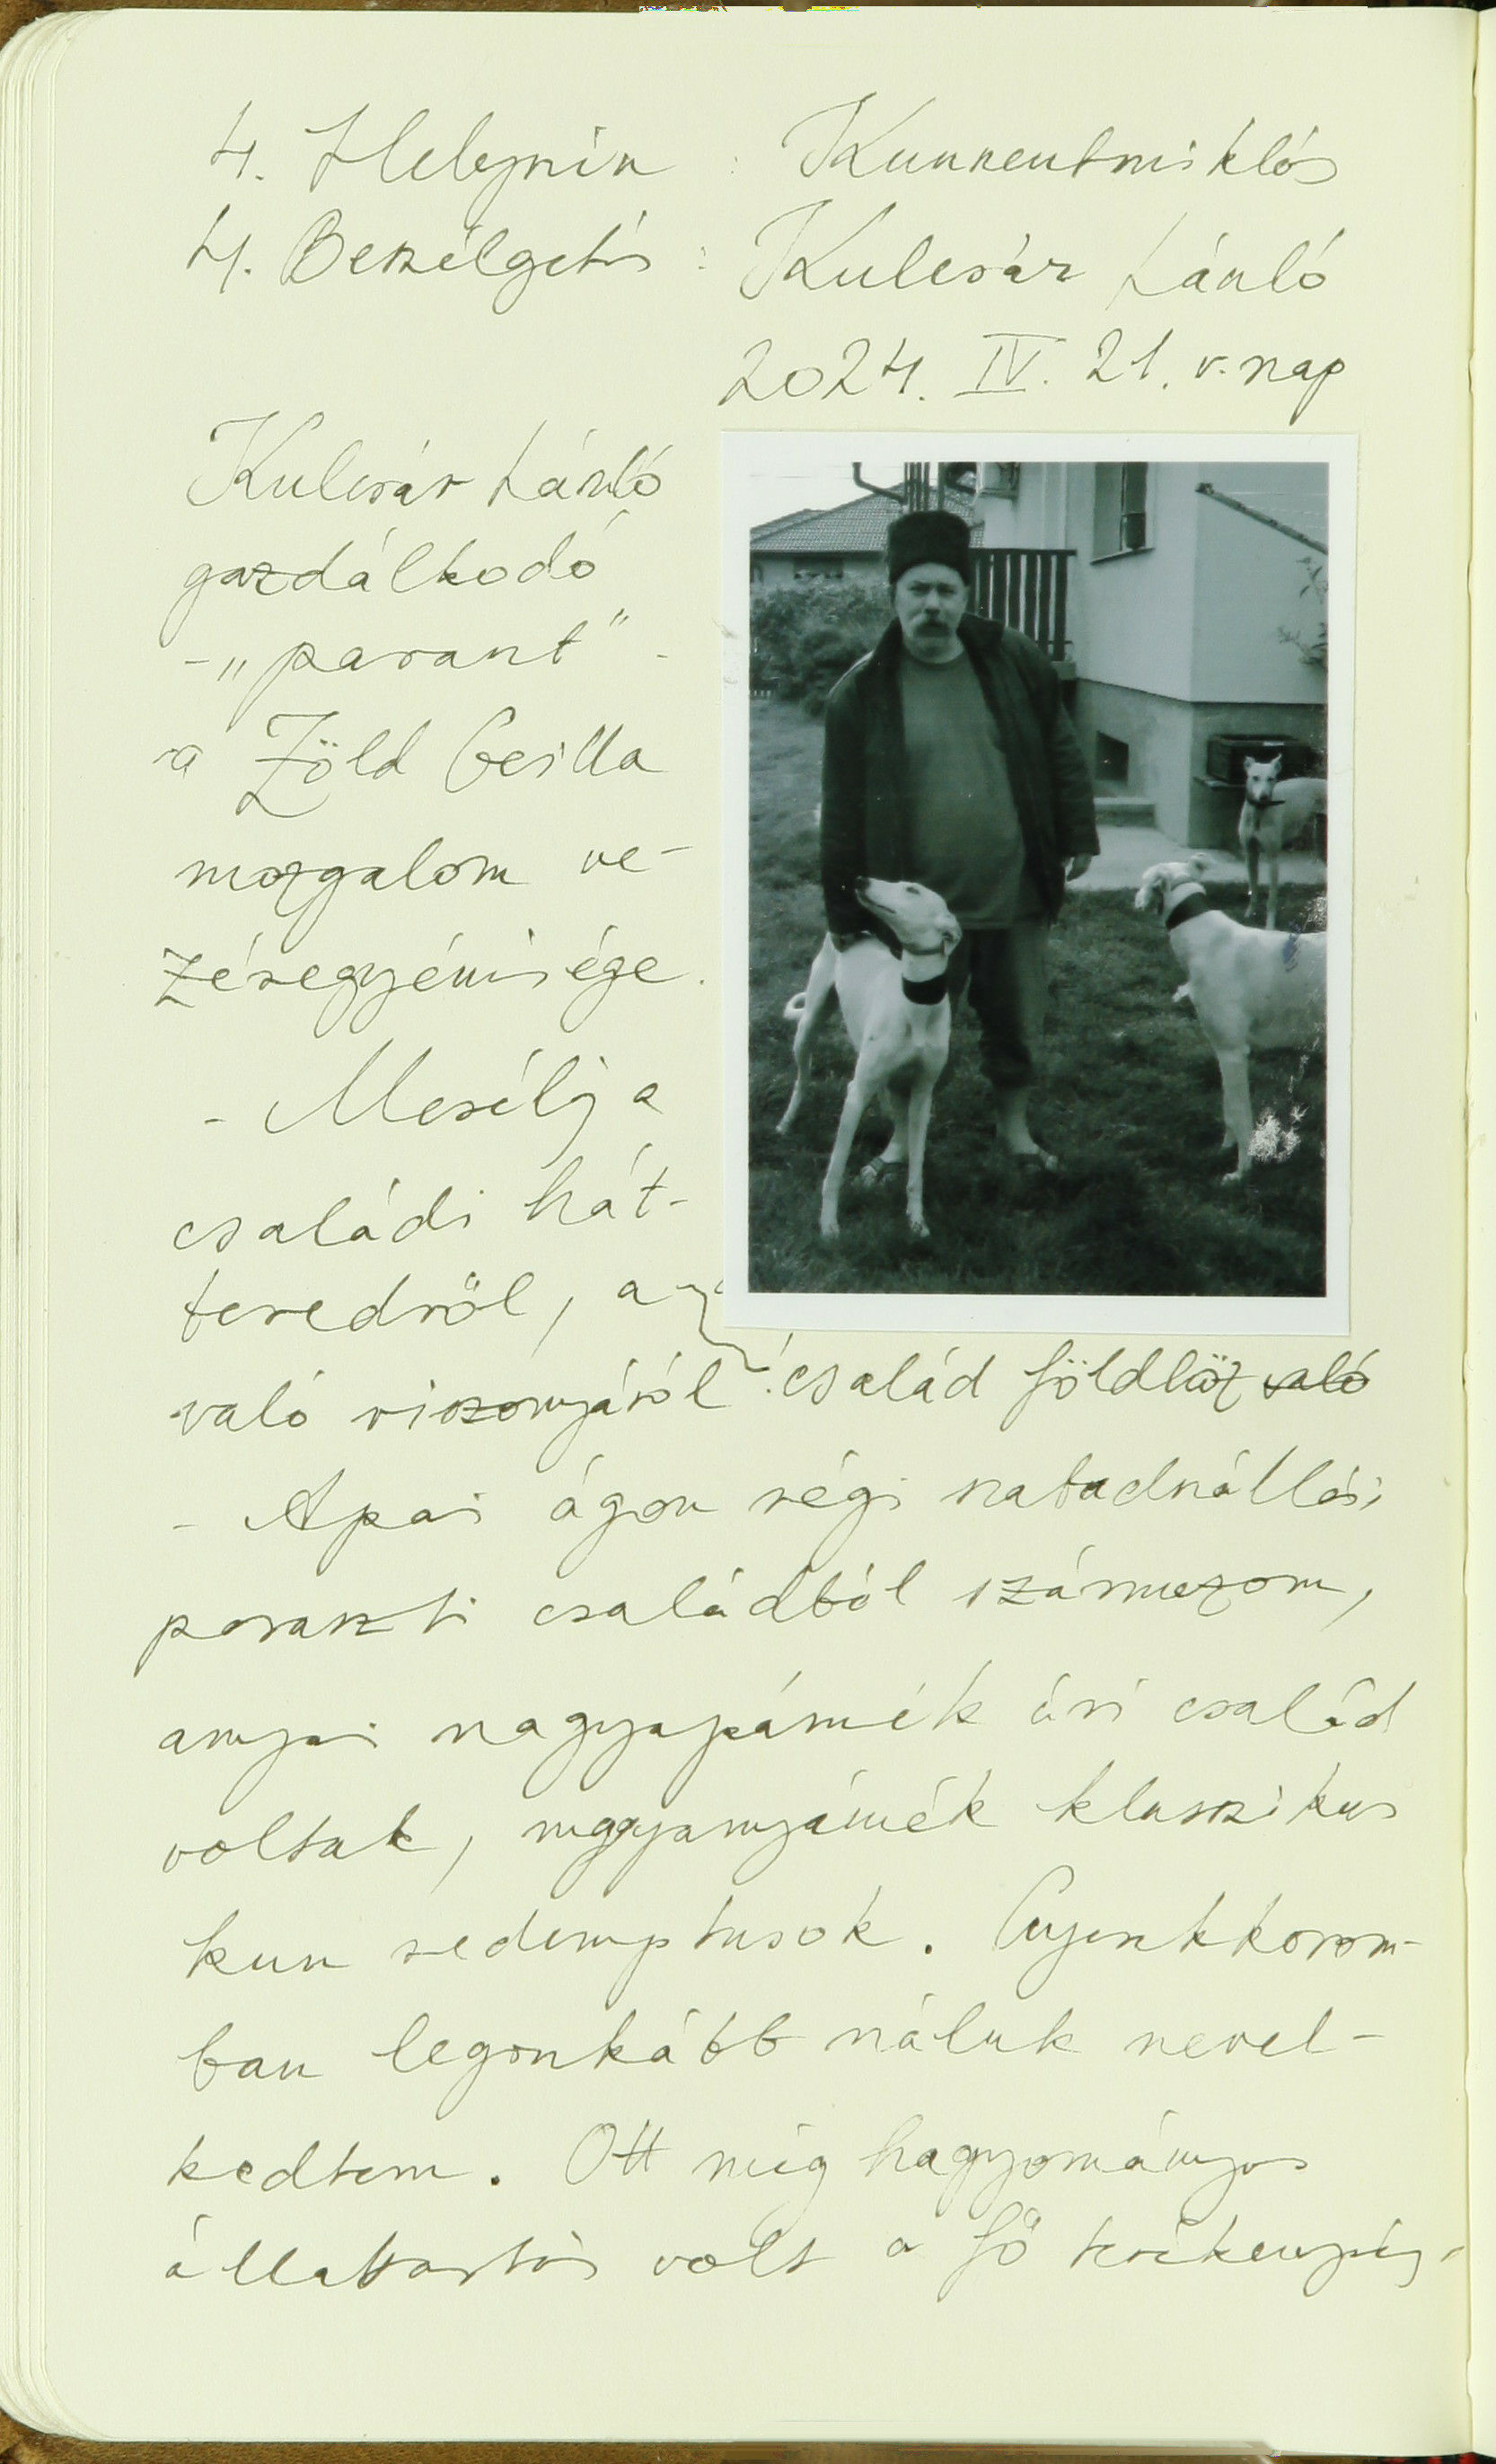 4. Helyszín : Kunszentmiklós
4. Beszélgetés : Kulcsár László
2024. IV. 21. v.nap
Kulcsár László
gazdálkodó
- „paraszt” -
a Zöld Gerilla
mozgalom ve-
zéregyénisége.
- Mesélj a
családi hát-
teredről, a
család földhöz való
való viszonyáról!
- Apai ágon régi szabadszállási
paraszti családból származom,
anyai nagyapámék úri család
voltak, nagyanyámék klasszikus
kun redemptusok. Gyerekkorom-
ban leginkább náluk nevel-
kedtem. Ott még hagyományos
állattartás volt a fő tevékenység,